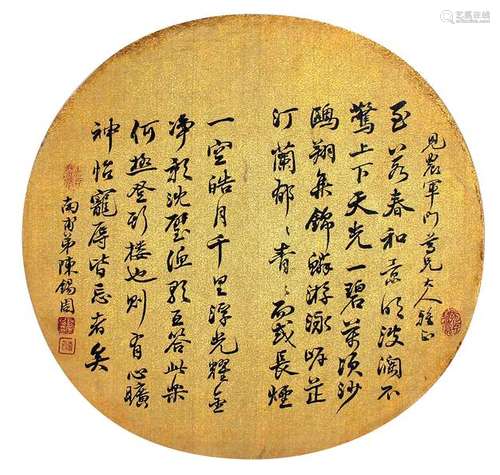 見農軍門尊兄大人雅正
至若春和景明波瀾不
驚上下天光一碧萬頃沙
鷗翔集錦鱗游泳岸芷
汀蘭郁〻青〻而或長煙
一空皓月千里浮光耀金
净影沈璧漁歌互答此樂
何極登斯樓也則有心曠
神怡寵辱皆忘者矣
弟陳錫
艺狐在线